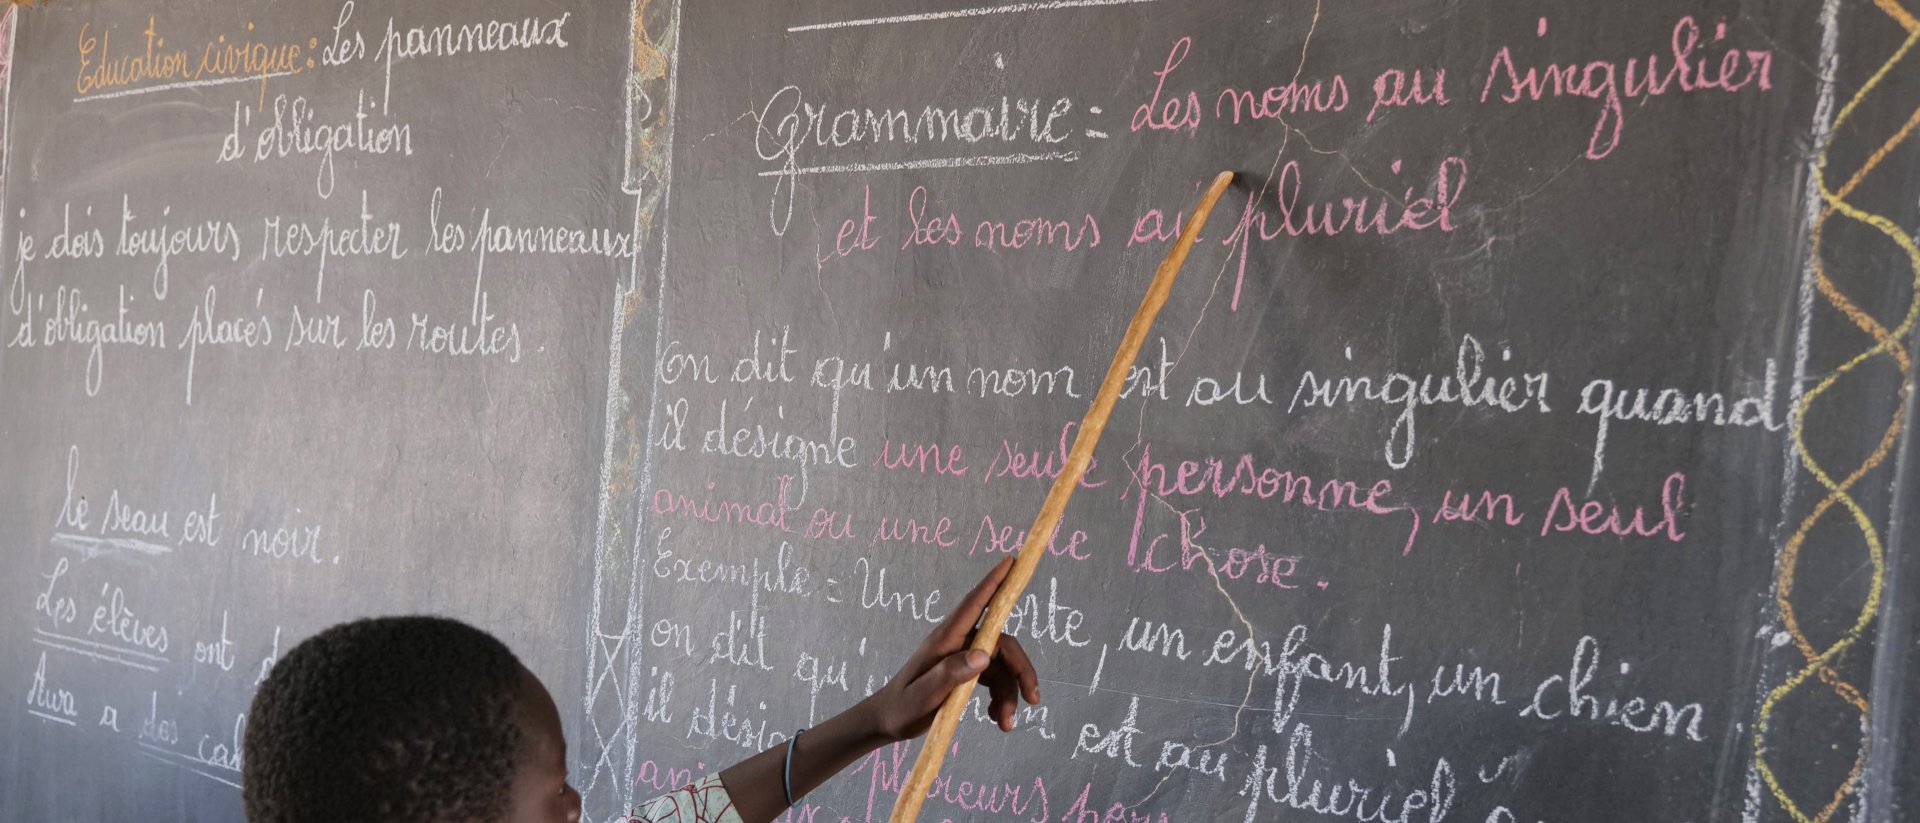 Education civique : Les panneaux
d'obligation
je dois toujours respecter les panneaux
d'obligation placés sur les routes.
le seau est noir.
Les élèves ont
Awa a des
Grammaire = Les noms au singulier
et les noms au pluriel
On dit qu'un nom est au singulier quand
il désigne une seule personne, un seul
animal ou une seule chose.
Exemple = Une porte, un enfant, un chien
on dit qu'un nom est au pluriel
il
plusieurs